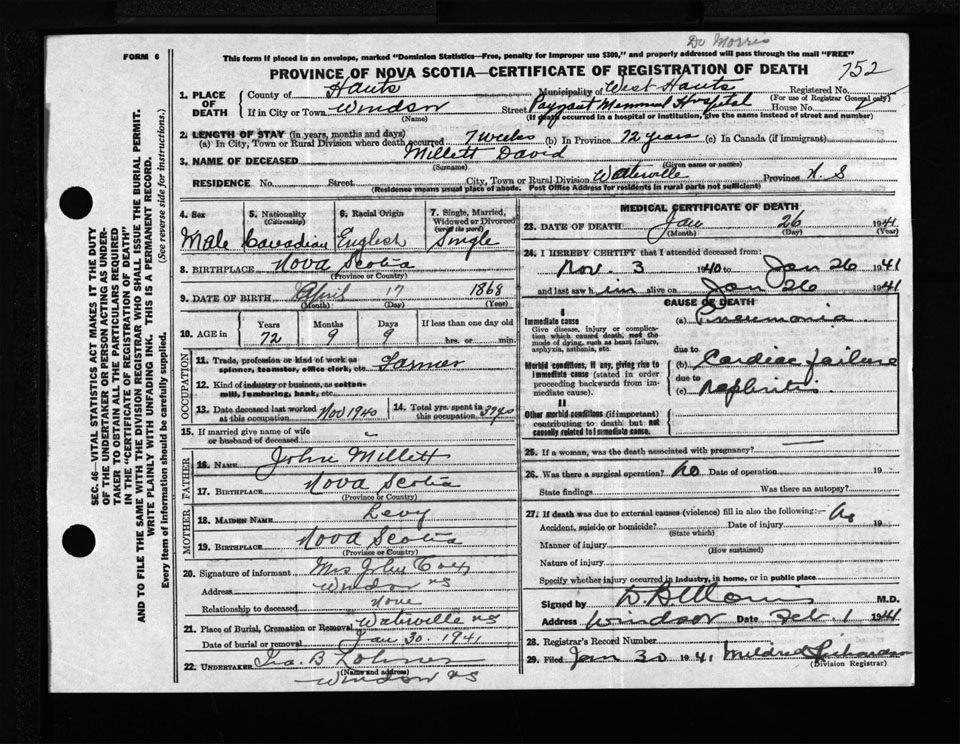 Dr Morris
FORM 6
This form if placed in an envelope, marked "Dominion Statistics—Free, penalty for improper use $300," and properly addressed will pass through the mail "FREE"
PROVINCE OF NOVA SCOTIA—CERTIFICATE OF REGISTRATION OF DEATH
752
1. PLACE OF DEATH
County of Hants Municipality of West Hants Registered No.
(For use of Registrar General only)
If in City or Town Windsor Street Payzant Memorial Hospital House No.
(Name) (If death occurred in a hospital or institution, give the name instead of street and number)
2. LENGTH OF STAY (in years, months and days)
(a) In City, Town or Rural Division where death occurred 7 weeks (b) In Province 72 years (c) In Canada (if immigrant)
3. NAME OF DECEASED Millett David
(Surname) (Given name or names)
RESIDENCE No. Street City, Town or Rural Division Waterville Province N. S
(Residence means usual place of abode. Post Office Address for residents in rural parts not sufficient)
4. Sex Male
5. Nationality (Citizenship) Canadian
6. Racial Origin English
7. Single, Married, Widowed or Divorced (write the word) Single
8. BIRTHPLACE Nova Scotia
(Province or Country)
9. DATE OF BIRTH April 17 1868
(Month) (Day) (Year)
10. AGE in Years 72 Months 9 Days 9 If less than one day old hrs. or min.
OCCUPATION
11. Trade, profession or kind of work as spinner, teamster, office clerk, etc. Farmer
12. Kind of industry or business, as cotton-mill, lumbering, bank, etc.
13. Date deceased last worked at this occupation Nov 1940
14. Total yrs. spent in this occupation
15. If married give name of wife or husband of deceased
FATHER
16. NAME John Millett
17. BIRTHPLACE Nova Scotia
(Province or Country)
MOTHER
18. MAIDEN NAME Levy
19. BIRTHPLACE Nova Scotia
(Province or Country)
20. Signature of informant Mrs John Cox
Address Windsor NS
Relationship to deceased None
21. Place of Burial, Cremation or Removal Waterville NS
Date of burial or removal Jan 30. 1941
22. UNDERTAKER Ira. B
(Name and address)
Windsor NS
MEDICAL CERTIFICATE OF DEATH
23. DATE OF DEATH Jan 26 1941
(Month) (Day) (Year)
24. I HEREBY CERTIFY that I attended deceased from:
Nov. 3 1940 to Jan 26 1941
and last saw him alive on Jan 26 1941
CAUSE OF DEATH
I
Immediate cause (a) Pneumonia
Give disease, injury or complication which caused death, not the mode of dying, such as heart failure, asphyxia, asthenia, etc.
due to
(b) Cardiac failure
Morbid conditions, if any, giving rise to immediate cause (stated in order proceeding backwards from immediate cause).
due to
(c) Nephritis
II
Other morbid conditions (if important) contributing to death but not causally related to immediate cause.
25. If a woman, was the death associated with pregnancy?
26. Was there a surgical operation? no Date of operation 19
State findings Was there an autopsy?
27. If death was due to external causes (violence) fill in also the following:— no
Accident, suicide or homicide? Date of injury 19
(State which)
Manner of injury
(How sustained)
Nature of injury
Specify whether injury occurred in industry, in home, or in public place
Signed by M.D.
Address Windsor Date Feb. 1 1941
28. Registrar's Record Number
29. Filed Jan 30 1941 Mildred
(Division Registrar)
SEC. 46—VITAL STATISTICS ACT MAKES IT THE DUTY
OF THE UNDERTAKER OR PERSON ACTING AS UNDER-
TAKER TO OBTAIN ALL THE PARTICULARS REQUIRED
IN THE "CERTIFICATE OF REGISTRATION OF DEATH"
AND TO FILE THE SAME WITH THE DIVISION REGISTRAR WHO SHALL ISSUE THE BURIAL PERMIT.
WRITE PLAINLY WITH UNFADING INK. THIS IS A PERMANENT RECORD.
Every item of information should be carefully supplied. (See reverse side for instructions.)